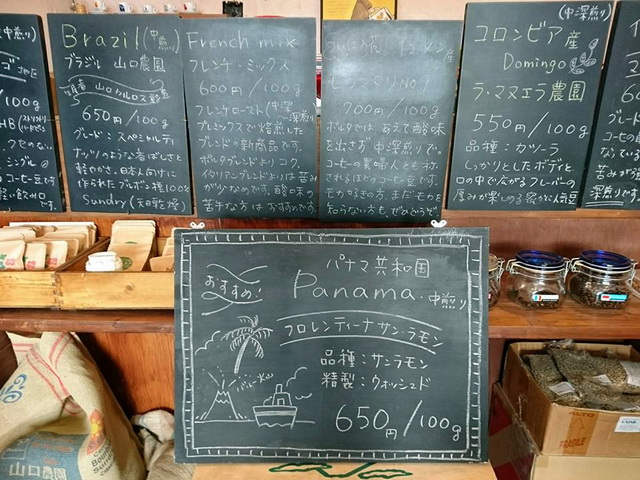 Brazil (中煎り)
ブラジル 山口農園
650円/100g
グレード:スペシャルティ
ナッツのような香ばしさと
軽やかさ。日本人向けに
作られたブルボン種100%
Sundry (天日乾燥)
French mix
フレンチ・ミックス
600円/100g
フレンチロースト(中深
深煎り)
プレミックスで焙煎した
ブレンドの新商品です。
ポルタブレンドよりコク、
イタリアンブレンドよりは苦み
がひかえめです。酸味の
苦手な方はおすすめです
700円/100g
ポルタでは あえて酸味
を出さず 中深煎りで。
コーヒーの貴婦人とも称
されるほどのコーヒー豆です。
モカ好きの方、まだモカを
知らない方も、ぜひどうぞ
(中深煎り)
コロンビア産
Domingo
ラ・マヌエラ農園
550円/100g
品種:カツーラ
しっかりとしたボディと
口の中で広がるフレーバーの
厚みが楽しめる
/100g
シングル
おすすめ!
パナマ共和国
Panama. 中煎り
フロレンティーナ サン・ラモン
品種:サンラモン
精製:ウォッシュド
650円/100g
山口農園
FRAGILE